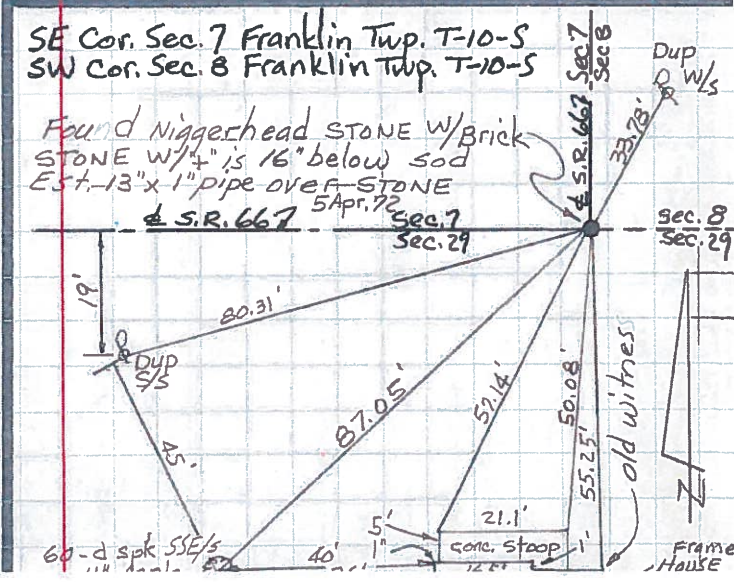 SE Cor. Sec. 7 Franklin Twp. T-10-S
SW Cor. Sec. 8 Franklin Twp. T-10-S
Found Niggerhead STONE W/Brick
STONE W/"+" is 16" below sod
Est. 13"x 1" pipe over STONE
5 Apr. 72
℄ S.R. 667
Sec. 7
Sec. 29
℄ S.R. 667
Sec 7
Sec 8
Dup
W/s
33.78'
sec. 8
Sec. 29
19'
80.31'
Dup
S/S
87.05'
57.14'
50.08'
55.25'
old witnes
45'
21.1'
5'
1"
conc. Stoop
1'
60-d spk SSE/s
40'
Frame
House
N